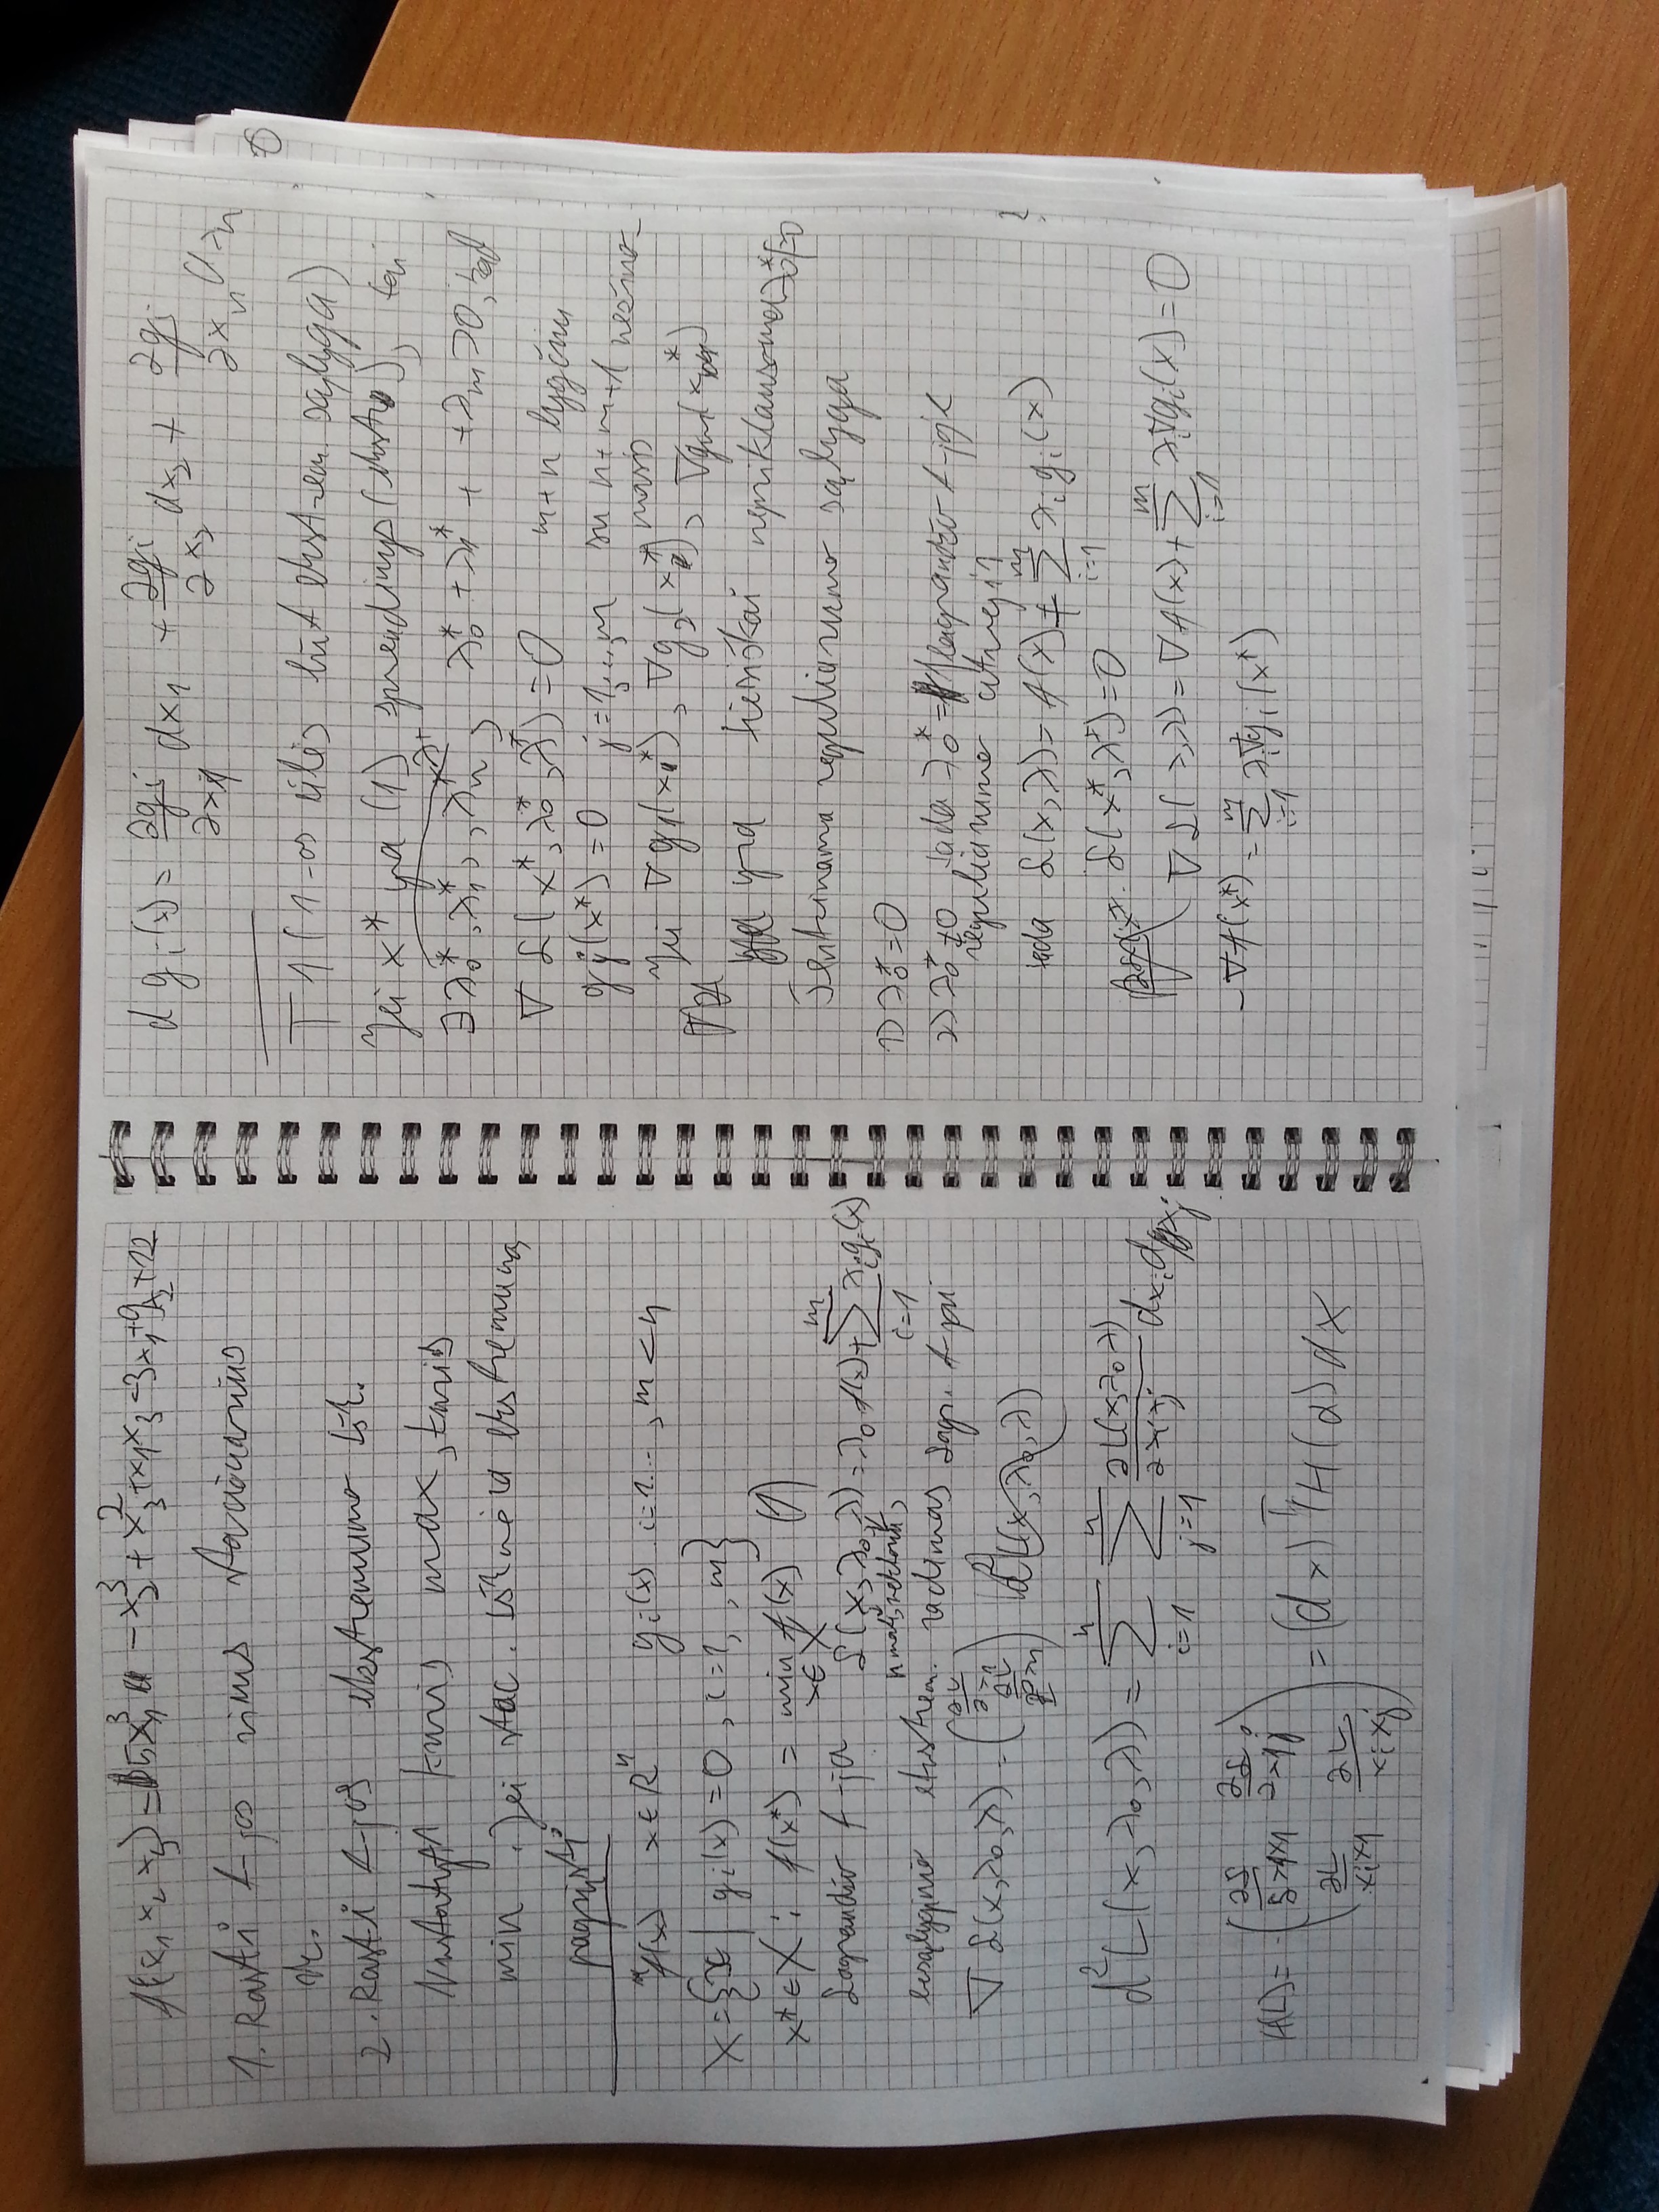 f(x₁ x₂ x₃) = 5x₁³ - x₂³ + x₃² + x₁x₃ - 3x₁ + 9x₂ + 12
1. Rasti f-jos visus stacionarius
tšk.
2. Rasti f-jos ekstremumo tšk.
Nustatyti kuris max, kuris
min. Jei stac. tšk nėra ekstremumas
pagrįsti
f(x) x∈Rⁿ gᵢ(x) i=1..., m<n
X={x | gᵢ(x)=0, i=1, , m}
x*∈X: f(x*) = min f(x) (1)
x∈X
Lagrandžo f-ja ℒ(x,λ₀,λ)=λ₀f(x)+∑ᵢ₌₁ᵐ λᵢgᵢ(x)
besąlyginio ekstrem. radimas Lagr. f-jai
∇ℒ(x,λ₀,λ) = (∂L/∂x₁ ∂L/∂xₙ) d²L(x,λ₀,λ)
d²L(x,λ₀,λ) = ∑ᵢ₌₁ⁿ ∑ⱼ₌₁ⁿ ∂L(x,λ₀,λ)/∂xᵢxⱼ dxᵢdxⱼ
H(L)= = (dx)ᵀH(ℒ)dx
∂L/xᵢx₁ ∂L/xᵢxⱼ
d gᵢ(x) = ∂gᵢ/∂x₁ dx₁ + ∂gᵢ/∂x₂ dx₂ + ∂gᵢ/∂xₙ dxₙ
T1 (1-os eilės būt ekstrem. sąlyga)
Jei x* yra (1) sprendinys (ekstr), tai
∃λ₀*, λ₁*, , λₙ*, λ₀* + λ₁* + +λₘ>0, kad
∇ℒ(x*, λ₀*, λ*)=0 m+n lygčių
gⱼ(x*)=0 j=1,..,m su n+m+1 nežino-
masis
Jei ∇g₁(x*), ∇g₂(x*), ∇gₘ(x*)
yra tiesiškai nepriklausoma λ₀*≠0
Tenkinama reguliarumo sąlyga
1) λ₀*=0
2) λ₀*≠0 tada λ₀*=1 Lagrandžo f-joje
reguliarumo atveji
tada ℒ(x,λ)= f(x)+∑ᵢ₌₁ᵐ λᵢgᵢ(x)
ℒ(x*,λ*)=0
∇ℒ(x,λ) = ∇f(x)+∑ᵢ₌₁ᵐ λᵢ∇gᵢ(x)=0
-∇f(x*) = ∑ᵢ₌₁ᵐ λᵢ∇gᵢ(x*)